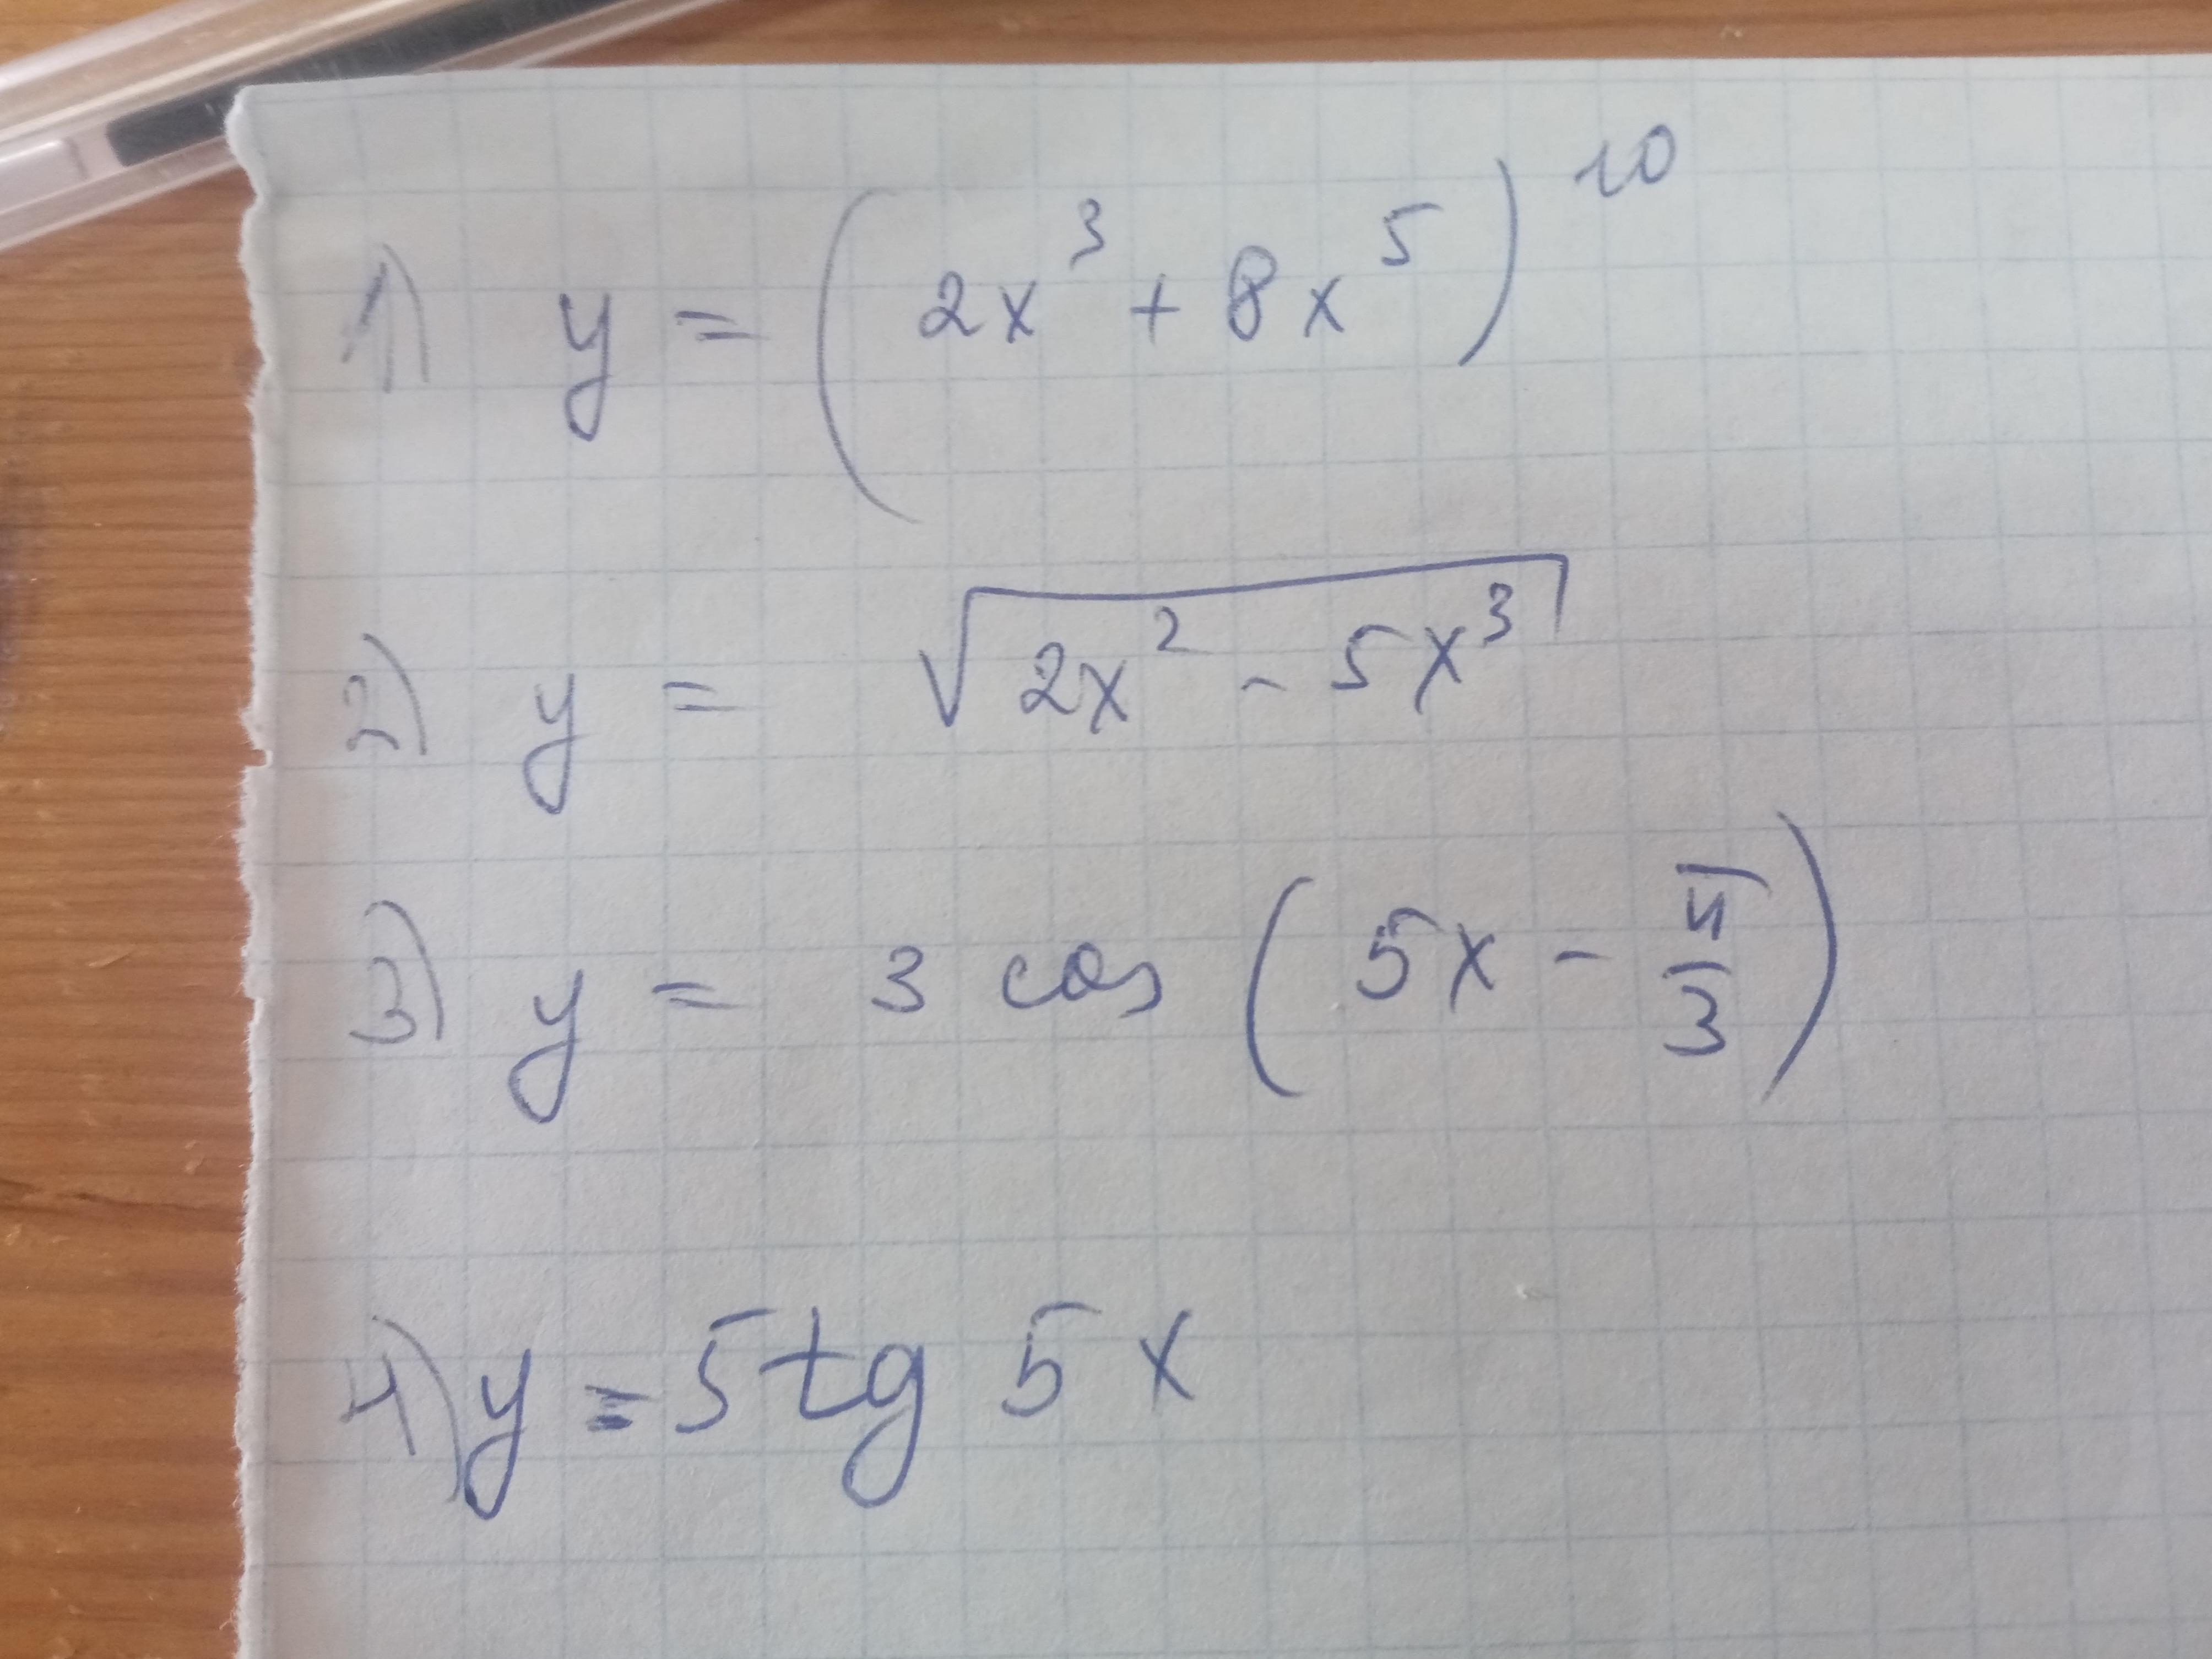 1) y = (2x³ + 8x⁵)¹⁰
2) y = √(2x² - 5x³)
3) y = 3 cos (5x - π/3)
4) y = 5 tg 5x